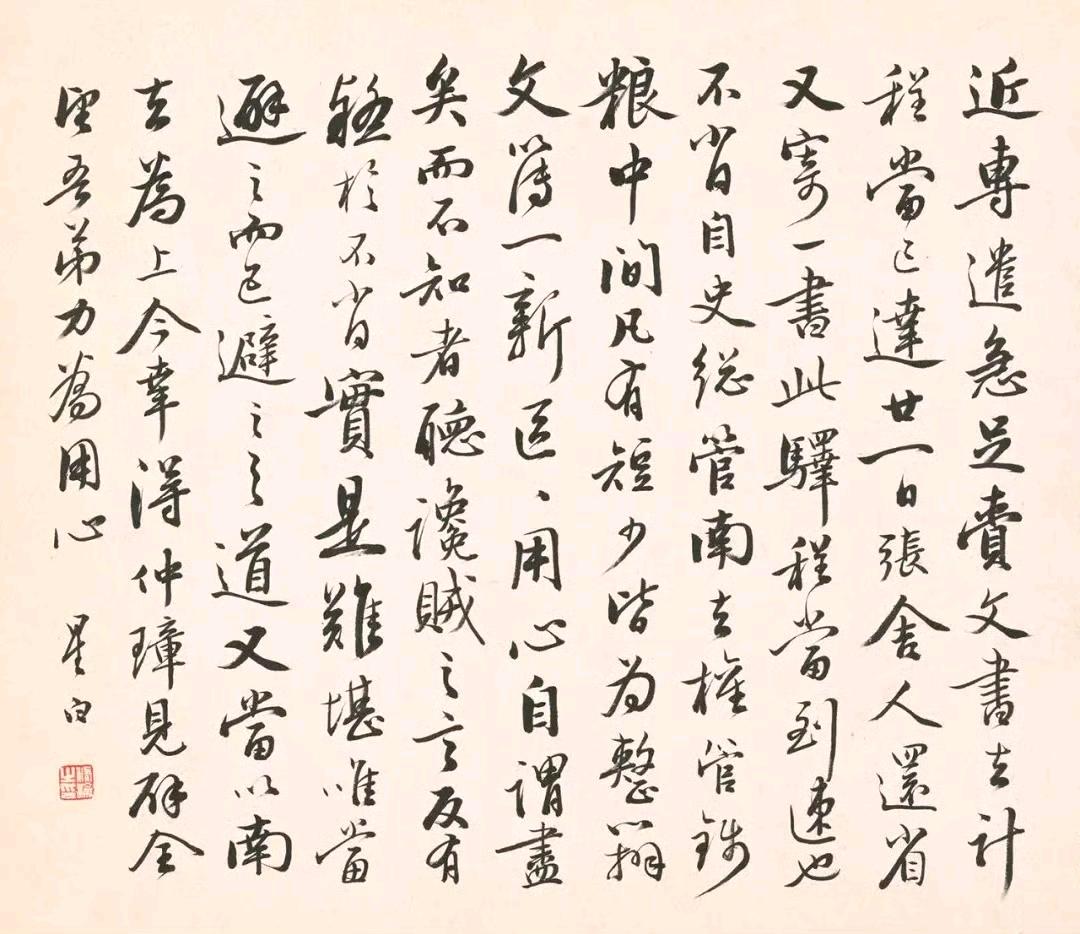 近專遣急足賫文書去計
程當已達廿一日張舍人還省
又寄一書此驛程當到速也
不肖自史總管南去權管錢
粮中間凡有短少皆为整辦
文簿一新區、用心自謂盡
矣而不知者聽讒賊之言反有
疑於不肖實是難堪唯當
避之而已避之之道又當以南
去為上今幸得仲璋見辟全
望吾弟力為用心 星白